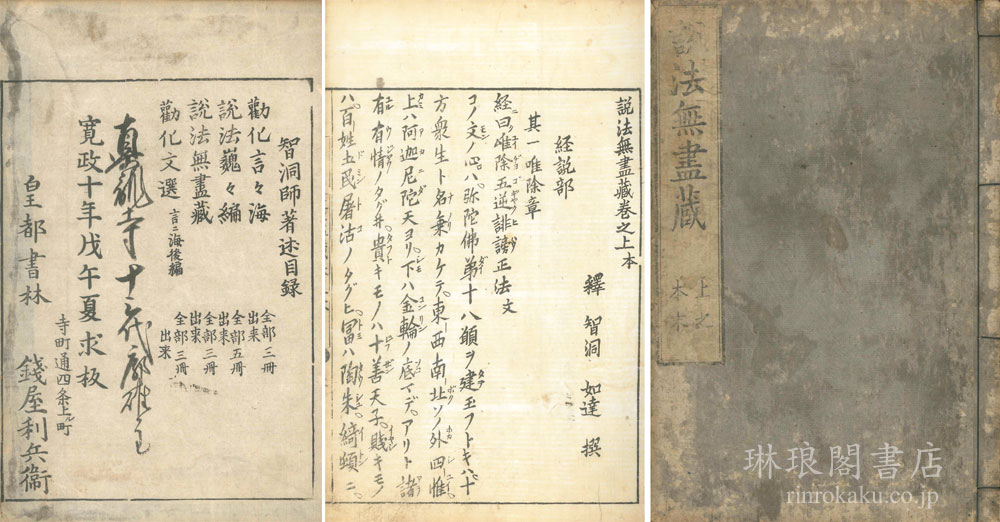 智洞師著述目録
勸化言々海 全部三冊 出来
説法巍々編 全部五冊 出来
説法無盡藏 全部三冊 出来
勸化文選 言々海後編 全部三冊 出来
寺十 代
寛政十年戊午夏求板
寺町通四条上ル町
皇都書林 錢屋利兵衞
説法無盡藏卷之上本
釋 智洞 如達 撰
経説部
其一唯除章
経曰唯除五逆誹謗正法文
コノ文ノ心ハ弥陀佛第十八願ヲ建玉フトキハ十
方衆生ト名乗カケテ東西南北ソノ外四惟
上ハ阿迦尼陀天ヨリ下ハ金輪ノ底マデアリト諸
有有情ノタグ井貴キモノハ十善天子賎キモノ
ハ百姓土民屠沽ノタグヒ冨ハ陶朱綺頓ニ
説法無盡蔵
上之
本末
琳琅閣書店
rinrokaku.co.jp